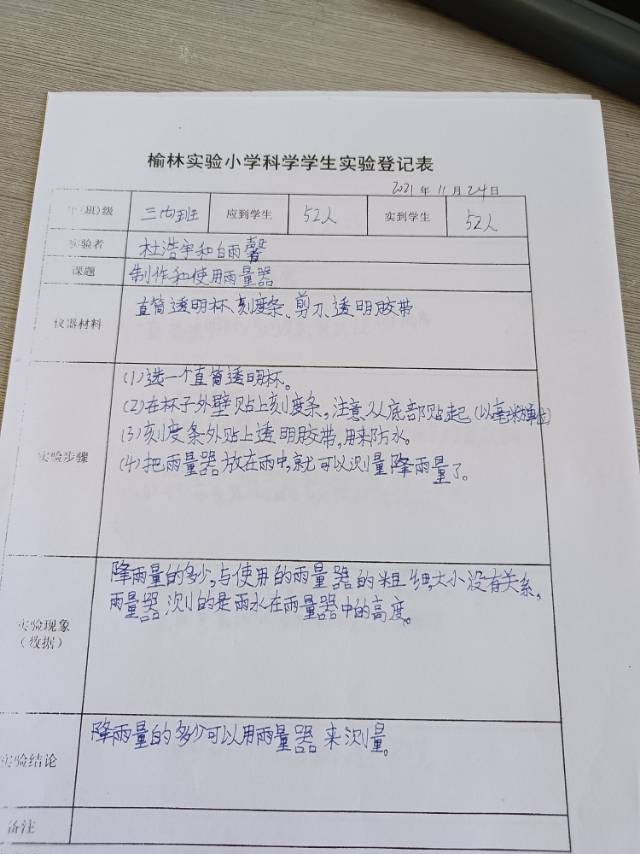 榆林实验小学科学学生实验登记表
2021年11月24日
年(班)级 三(4)班 应到学生 52人 实到学生 52人
实验者 杜浩宇和白雨馨
课题 制作和使用雨量器
仪器材料 直筒透明杯、刻度条、剪刀、透明胶带
(1)选一个直筒透明杯。
(2)在杯子外壁贴上刻度条,注意从底部贴起(以毫米为单位)
(3)刻度条外贴上透明胶带,用来防水。
实验步骤
(4)把雨量器放在雨中,就可以测量降雨量了。
降雨量的多少,与使用的雨量器的粗细,大小没有关系,
雨量器测的是雨水在雨量器中的高度。
实验现象
(数据)
降雨量的多少可以用雨量器来测量。
实验结论
备注